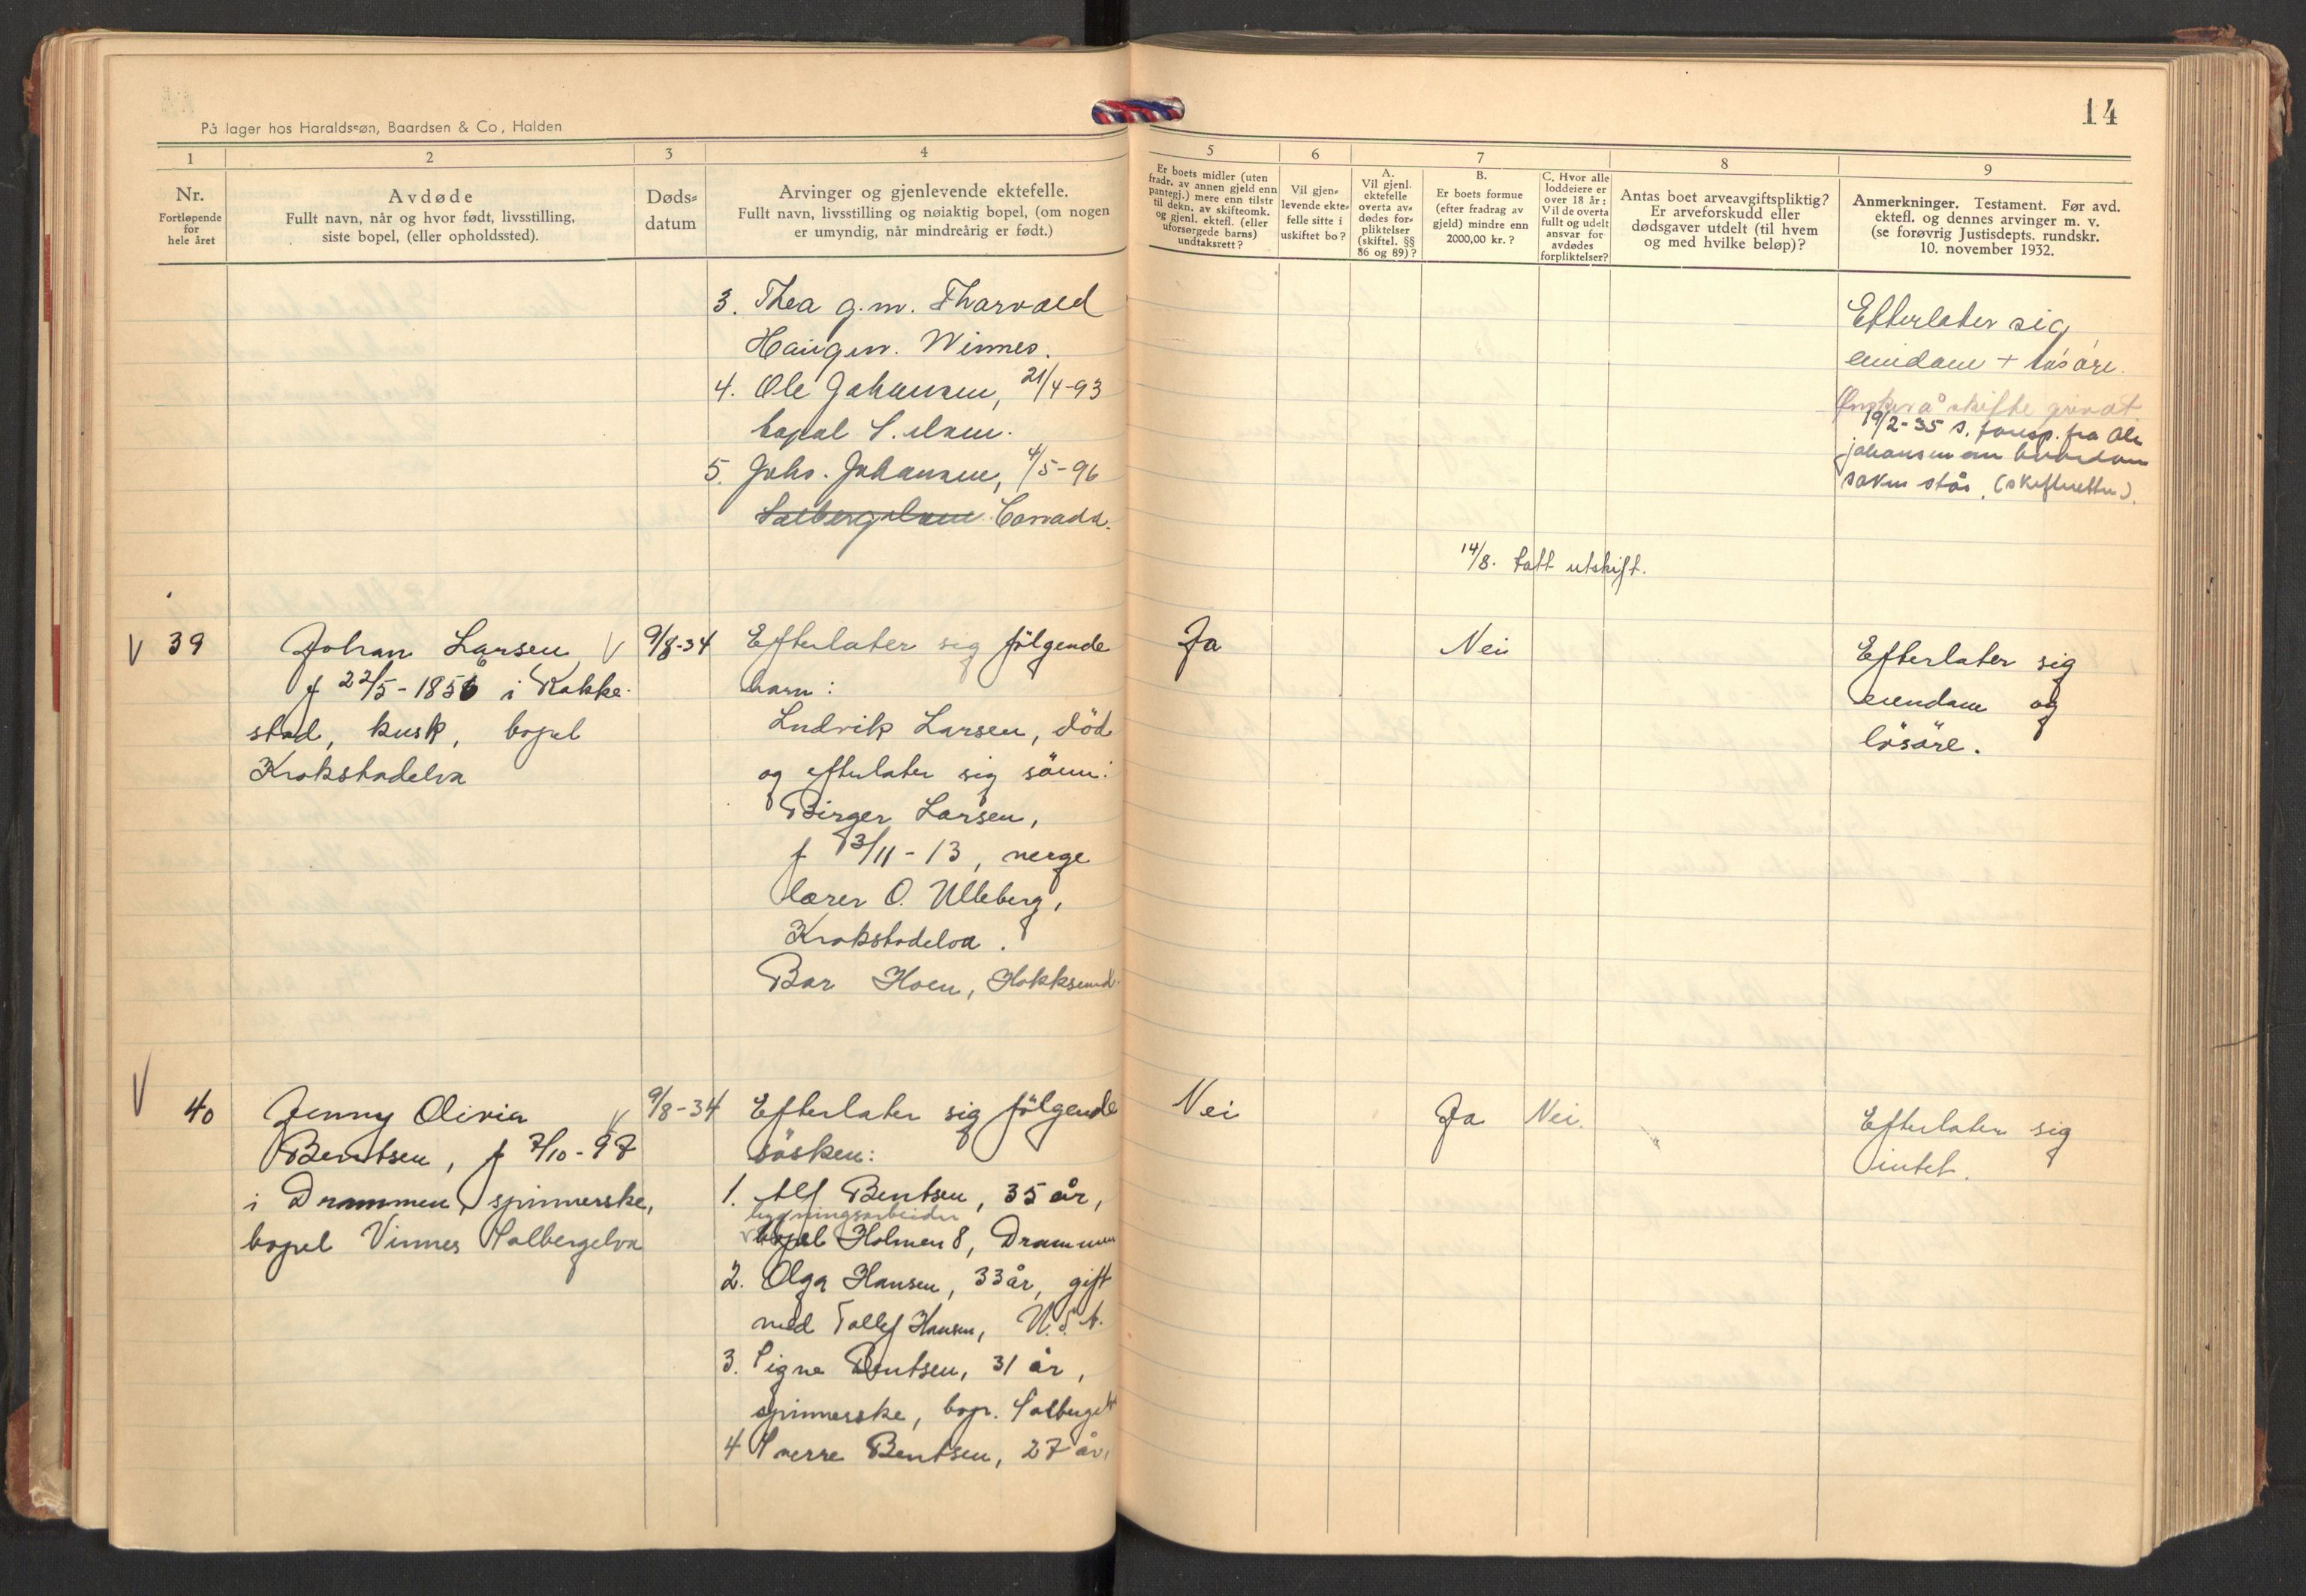 På lager hos Haraldsøn, Baardsen & Co, Halden
1
2
3
4
Nr.
Fortløpende
for
hele året
Avdøde
Fullt navn, når og hvor født, livsstilling,
siste bopel, (eller opholdssted).
Døds-
datum
Arvinger og gjenlevende ektefelle.
Fullt navn, livsstilling og nøiaktig bopel, (om nogen
er umyndig, når mindreårig er født.)
3. Thea g.m. Tharvald
Haugen. Winnes.
4. Ole Johansen, 21/4-93
bopel S.elven.
5. Johs. Johansen, 4/5-96
Solbergelven Canada.
V 39
Johan Larsen V
f 22/5-1856 i Kokke-
stad, kusk, bopel
Krokstadelva
9/8-34
Efterlater sig følgende
barn:
Ludvik Larsen, død
og efterlater sig sönn:
Birger Larsen,
f 13/11-13, verge
lærer O. Ulleberg,
Krokstadelva.
Bor Hoen, Hokksund.
V 40
Jenny Olivia V
Bentsen, f 7/10-97
i Drammen, spinnerske,
bopel Vinnes Solbergelva
9/8-34
Efterlater sig følgende
søsken:
1. Alf Bentsen, 35 år,
bygningsarbeider
bopel Holmen 8, Drammen
2. Olga Hansen, 33 år, gift
med Tollef Hansen, U.S.A.
3. Signe Bentsen, 31 år,
spinnerske, bop. Solbergelv
4 Sverre Bentsen, 27 år,
14
5
6
7
8
9
Er boets midler (uten
fradr. av annen gjeld enn
pantegj.) mere enn tilstr
til dekn. av skifteomk.
og gjenl. ektefl. (eller
uforsørgede barns)
undtaksrett?
Vil gjen-
levende ekte-
felle sitte i
uskiftet bo?
A.
Vil gjenl.
ektefelle
overta av-
dødes for-
pliktelser
(skiftel. §§
86 og 89)?
B.
Er boets formue
(efter fradrag av
gjeld) mindre enn
2000,00 kr.?
C. Hvor alle
loddeiere er
over 18 år:
Vil de overta
fullt og udelt
ansvar for
avdødes
forpliktelser?
Antas boet arveavgiftspliktig?
Er arveforskudd eller
dødsgaver utdelt (til hvem
og med hvilke beløp)?
Anmerkninger. Testament. Før avd.
ektefl. og dennes arvinger m. v.
(se forøvrig Justisdepts. rundskr.
10. november 1932.
Efterlater sig
eiendom + løsøre.
Ønsker å skifte privat
19/2-35 s. foresp. fra Ole
Johansen om hvordan
saken står. (skifteretten)
14/8. tatt utskift.
Ja
Nei
Efterlater sig
eiendom og
løsøre.
Nei
Ja
Nei.
Efterlater sig
intet.